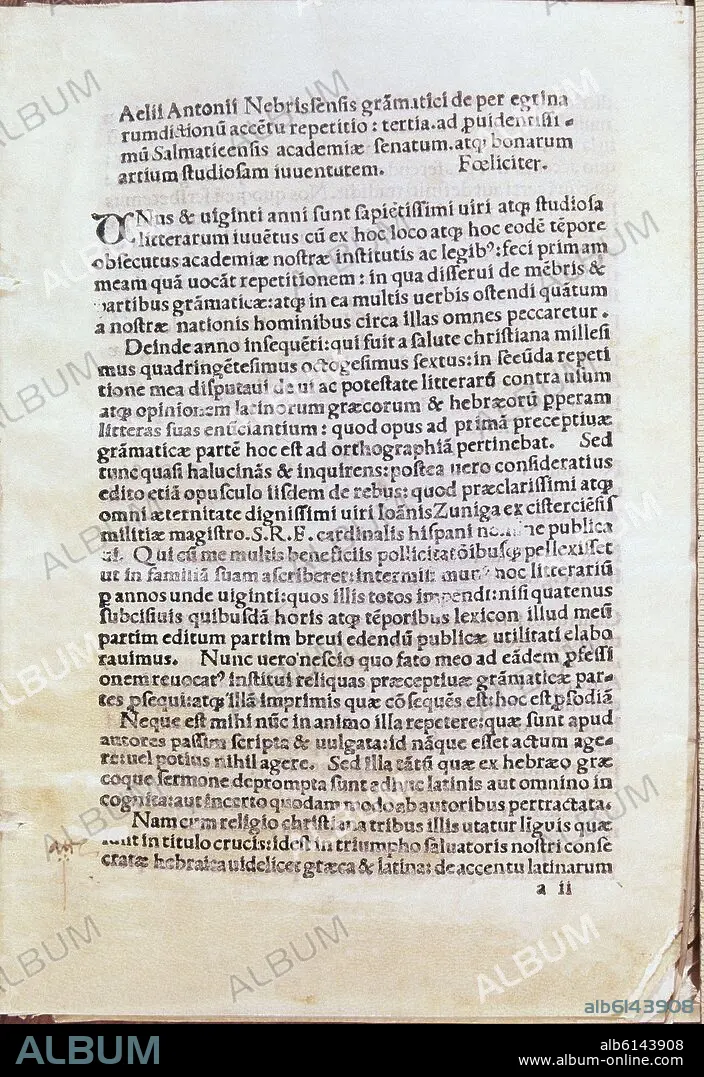 Aelii Antonii Nebrissẽsis grãmatici de per egrina
rum dictionũ accẽtu repetitio: tertia. ad ꝓuidentissi-
mũ Salmaticẽsis academiæ senatum. atq; bonarum
artium studiosam iuuentutem. Fœliciter.
Nus & uiginti anni sunt sapiẽtissimi uiri atq; studiosa
litterarum iuuẽtus cũ ex hoc loco atq; hoc eodẽ tẽpore
obsecutus academiæ nostræ institutis ac legibꝰ: feci primam
meam quã uocãt repetitionem: in qua disserui de mẽbris &
partibus grãmaticæ: atq; in ea multis uerbis ostendi quãtum
a nostræ nationis hominibus circa illas omnes peccaretur.
Deinde anno insequẽti: qui fuit a salute christiana millesi
mus quadringẽtesimus octogesimus sextus: in secũda repeti
tione mea disputaui de ui ac potestate litterarũ contra usum
atq; opinionem latinorum græcorum & hebræorũ ꝑperam
litteras suas enũciantium: quod opus ad primã preceptiuæ
grãmaticæ partẽ hoc est ad orthographiã pertinebat. Sed
tunc quasi halucinãs & inquirens: postea uero consideratius
edito etiã opusculo iisdem de rebus: quod præclarissimi atq;
omni æternitate dignissimi uiri Ioãnis Zuniga ex cisterciẽsis
militiæ magistro. S. R. E. cardinalis hispani nomine publica
ui. Qui cũ me multis beneficiis pollicitatiõibusq; pellexisset
ut in familiã suam ascriberet: intermisi munꝰ hoc litterariũ
ꝑ annos unde uiginti: quos illis totos impendi: nisi quatenus
subcisiuis quibusdã horis atq; tẽporibus lexicon illud meũ
partim editum partim breui edendũ publicæ utilitati elabo
rauimus. Nunc uero nescio quo fato meo ad eãdem ꝓfessi
onem reuocatꝰ institui reliquas præceptiuæ grãmaticæ par-
tes ꝓsequi: atq; illã imprimis quæ cõsequẽs est: hoc est ꝓsodiã
Neque est mihi nũc in animo illa repetere: quæ sunt apud
autores passim scripta & uulgata: id nãque esset actum age-
re: uel potius nihil agere. Sed illa tãtũ quæ ex hebræo græ
coque sermone deprompta sunt adhuc latinis aut omnino in
cognita: aut incerto quodam modo ab autoribus pertractata.
Nam cum religio christiana tribus illis utatur liguis quæ
sunt in titulo crucis: idest in triumpho saluatoris nostri conse
cratæ hebraica uidelicet græca & latina: de accentu latinarum
a ii
ALBUM
alb6143908
ALBUM
alb6143908
www.album-online.com